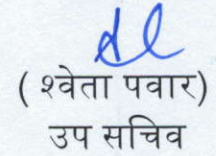 ( श्वेता पवार)
उप सचिव